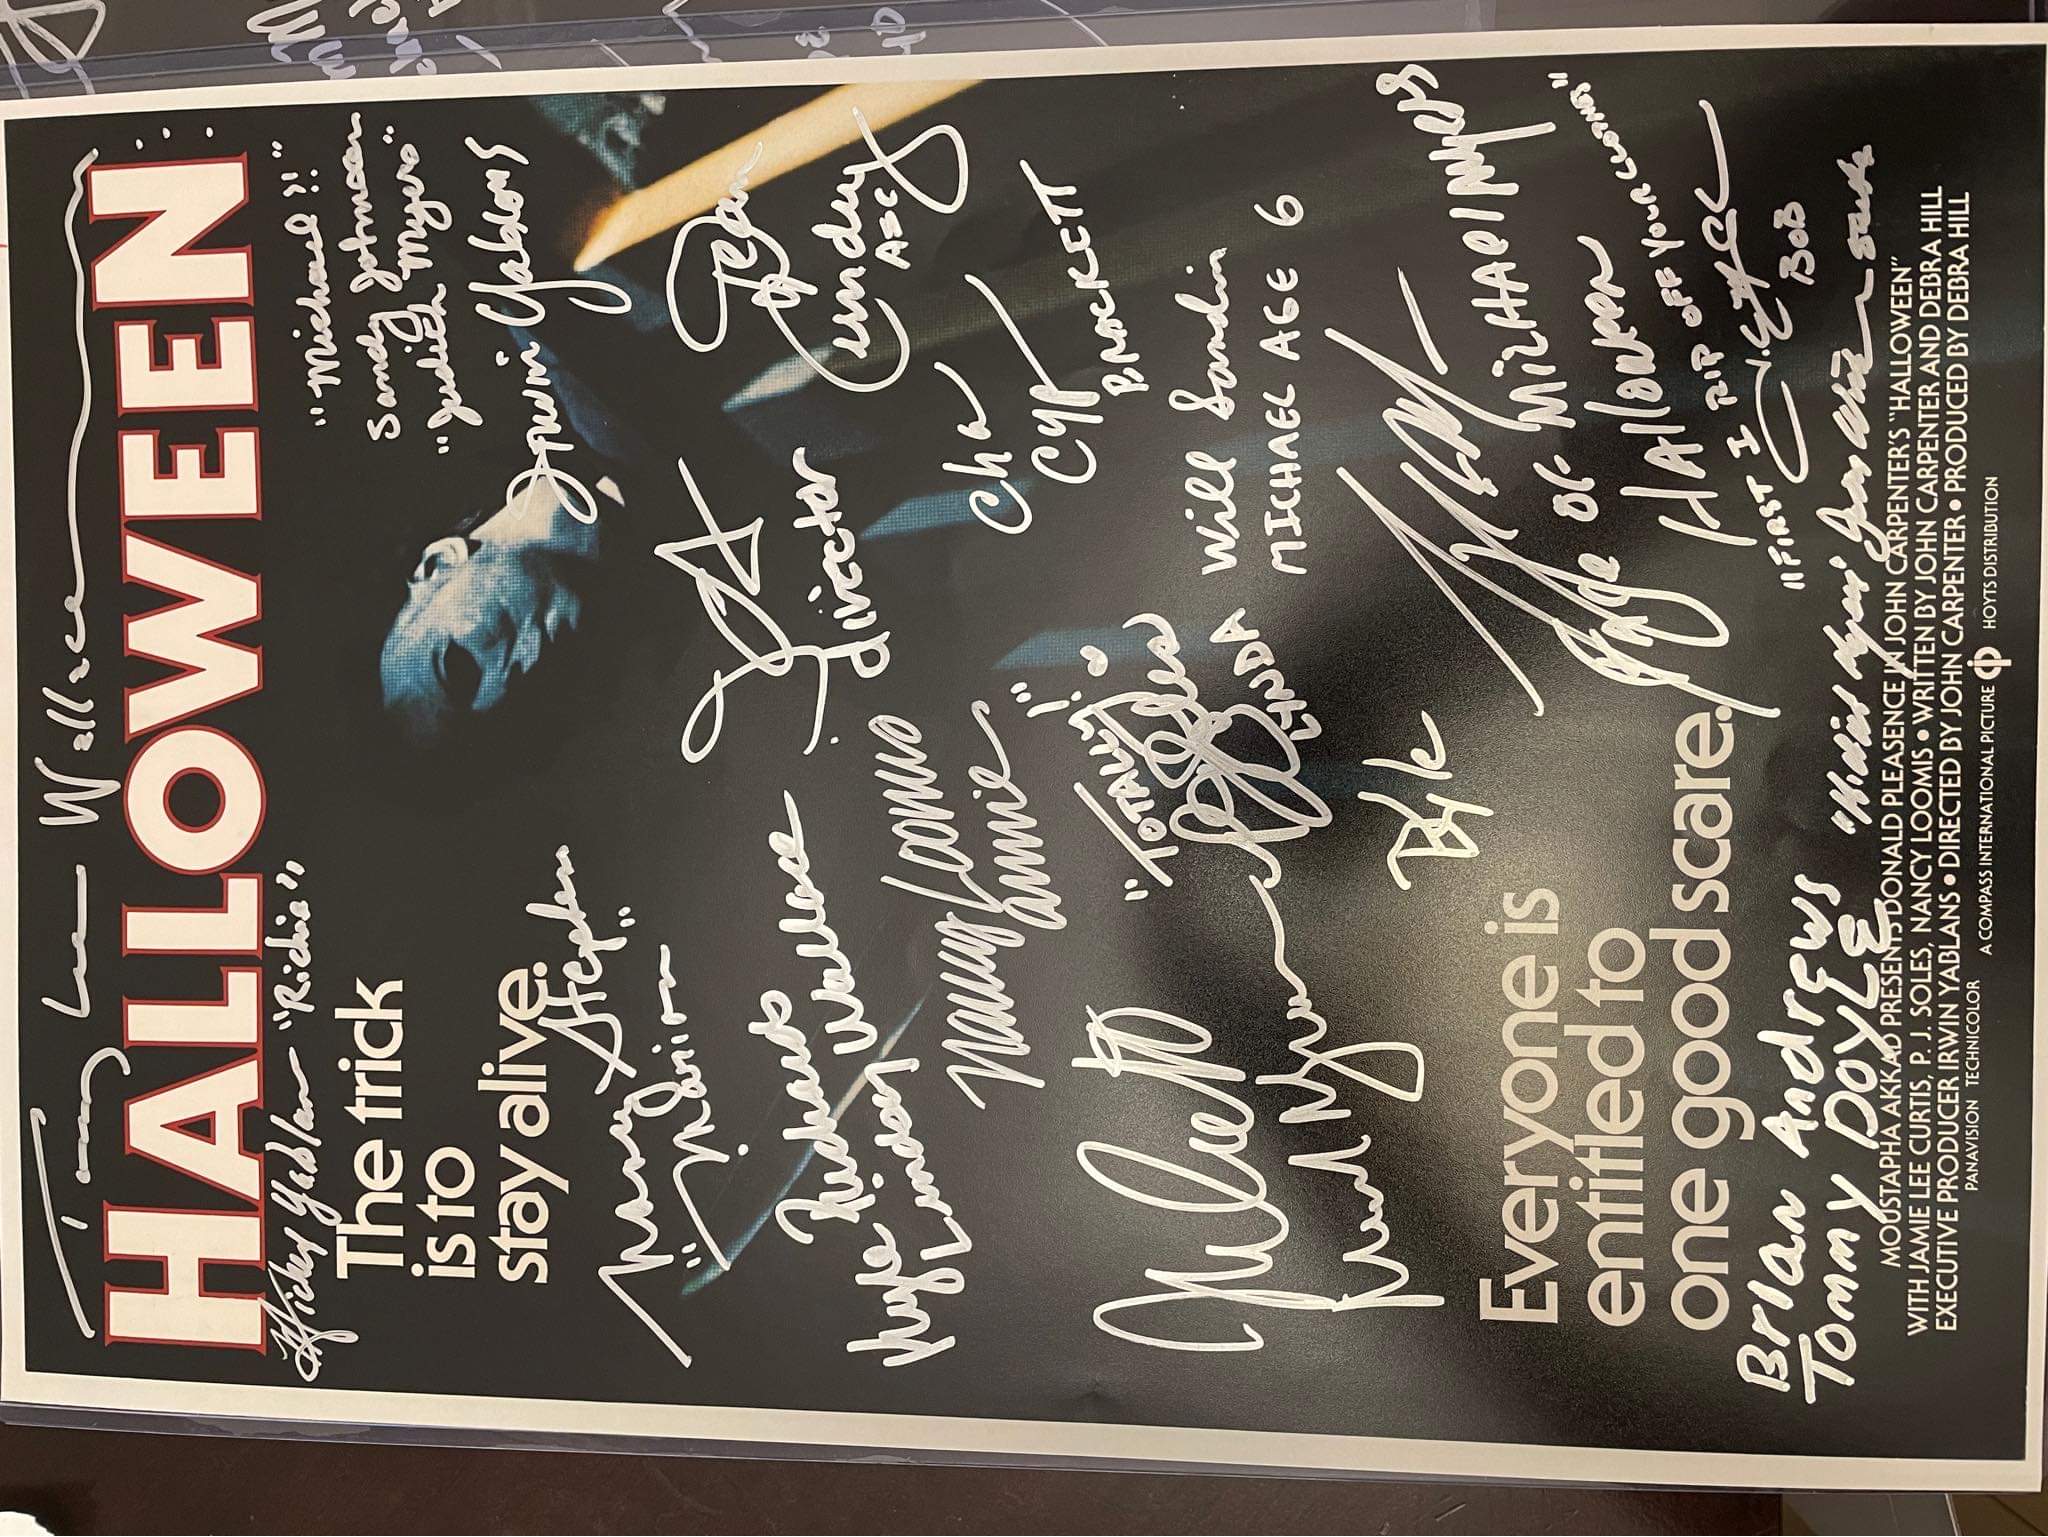 Tommy Lee Wallace
HALLOWEEN
Mickey Yablans "Richie"
"Michael!!"
Sandy Johnson
"Judith Myers"
The trick
is to
stay alive.
Irwin Yablans
Nancy Stephens
"Marion"
Dean Cundey
ASC
director
Kyle Richards
Lindsey Wallace
Nancy Loomis
Annie
Cha
Cyp
BRACKETT
"TOTALLY!"
LYNDA
Will Sandin
MICHAEL AGE 6
Kyle
MICHAEL MYERS
OF
HAllOWEEN
HAllOWEEN
"FIRST I RIP OFF YOUR CLOTHES"
BOB
Everyone is
entitled to
one good scare.
Brian Andrews
TOMMY DOYLE
MOUSTAPHA AKKAD PRESENTS DONALD PLEASENCE IN JOHN CARPENTER'S "HALLOWEEN"
WITH JAMIE LEE CURTIS, P. J. SOLES, NANCY LOOMIS • WRITTEN BY JOHN CARPENTER AND DEBRA HILL
EXECUTIVE PRODUCER IRWIN YABLANS • DIRECTED BY JOHN CARPENTER • PRODUCED BY DEBRA HILL
PANAVISION TECHNICOLOR A COMPASS INTERNATIONAL PICTURE HOYTS DISTRIBUTION